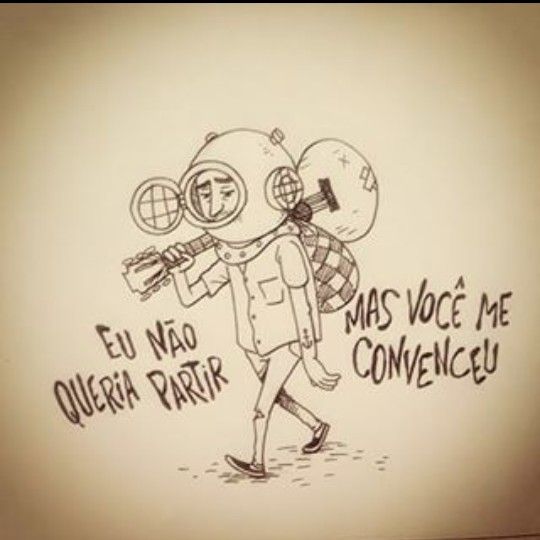 EU NÃO
QUERIA PARTIR
MAS VOCÊ ME
CONVENCEU